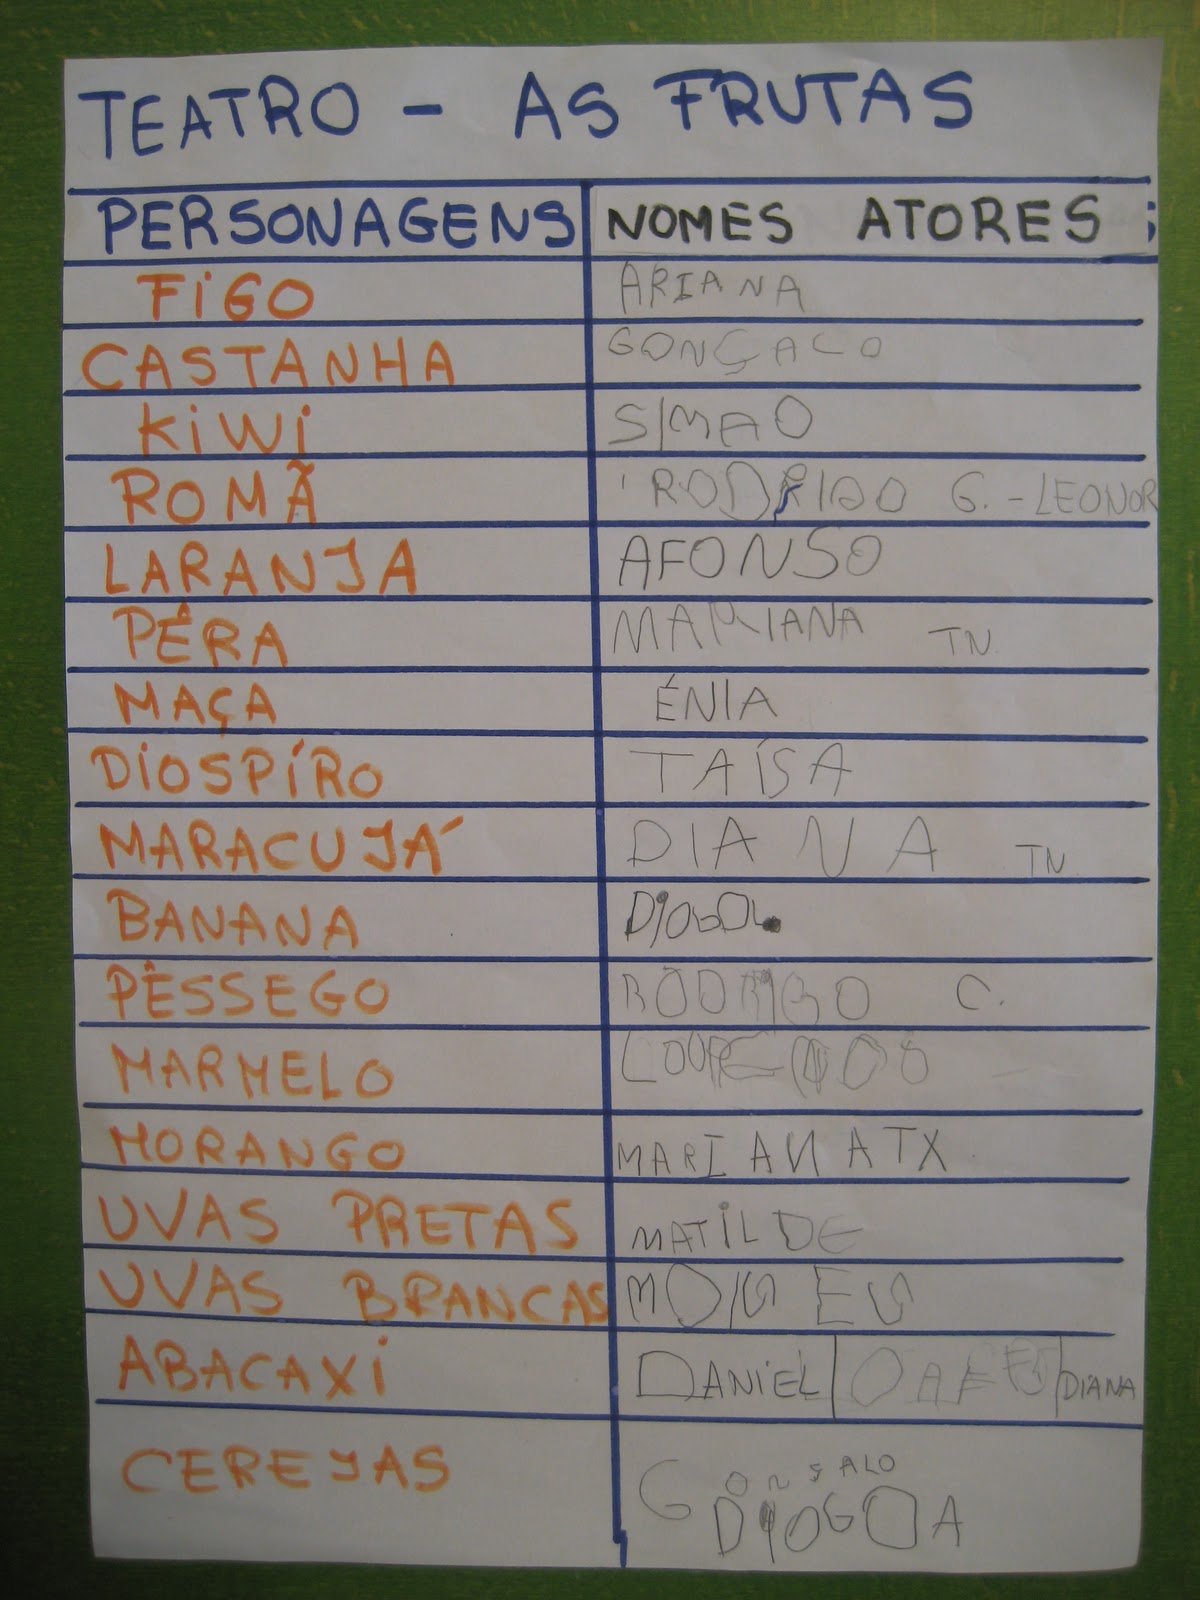 TEATRO - AS FRUTAS
PERSONAGENS NOMES ATORES
FIGO ARIANA
CASTANHA GONÇALO
KIWI SIMAO
ROMÃ RODRIGO G. - LEONOR
LARANJA AFONSO
PÊRA MARIANA TN
MAÇA ÉNIA
DIOSPÍRO TAÍSA
MARACUJÁ DIANA TN
BANANA DIOGO L.
PÊSSEGO RODRIGO C.
MARMELO
MORANGO MARIANA TX
UVAS PRETAS MATILDE
UVAS BRANCAS MOISES
ABACAXI DANIEL DIANA
CEREJAS GONÇALO
DIOGO A